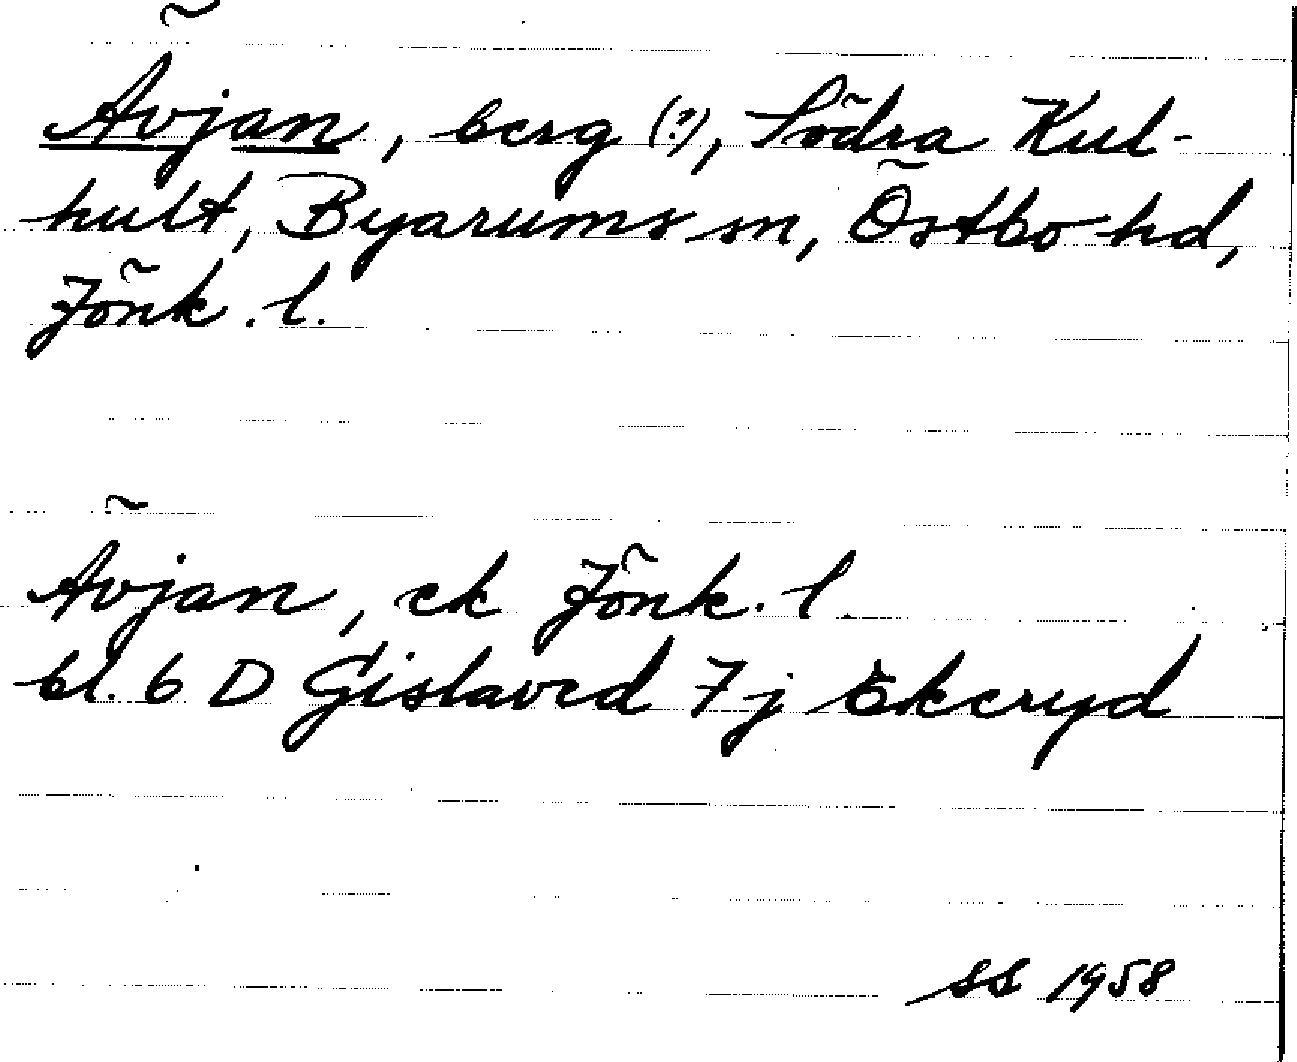 Ävjan, berg (?), Södra Kul-
hult, Byarums sn, Östbo hd,
Jönk. l.
Ävjan, ek Jönk. l.
bl. 6 D Gislaved 7 j Ekeryd
SS 1958